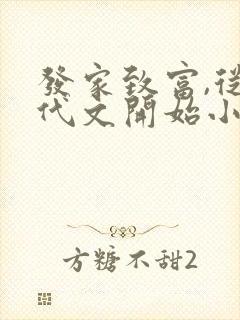 發家致富,從
代文開始小
方糖不甜2